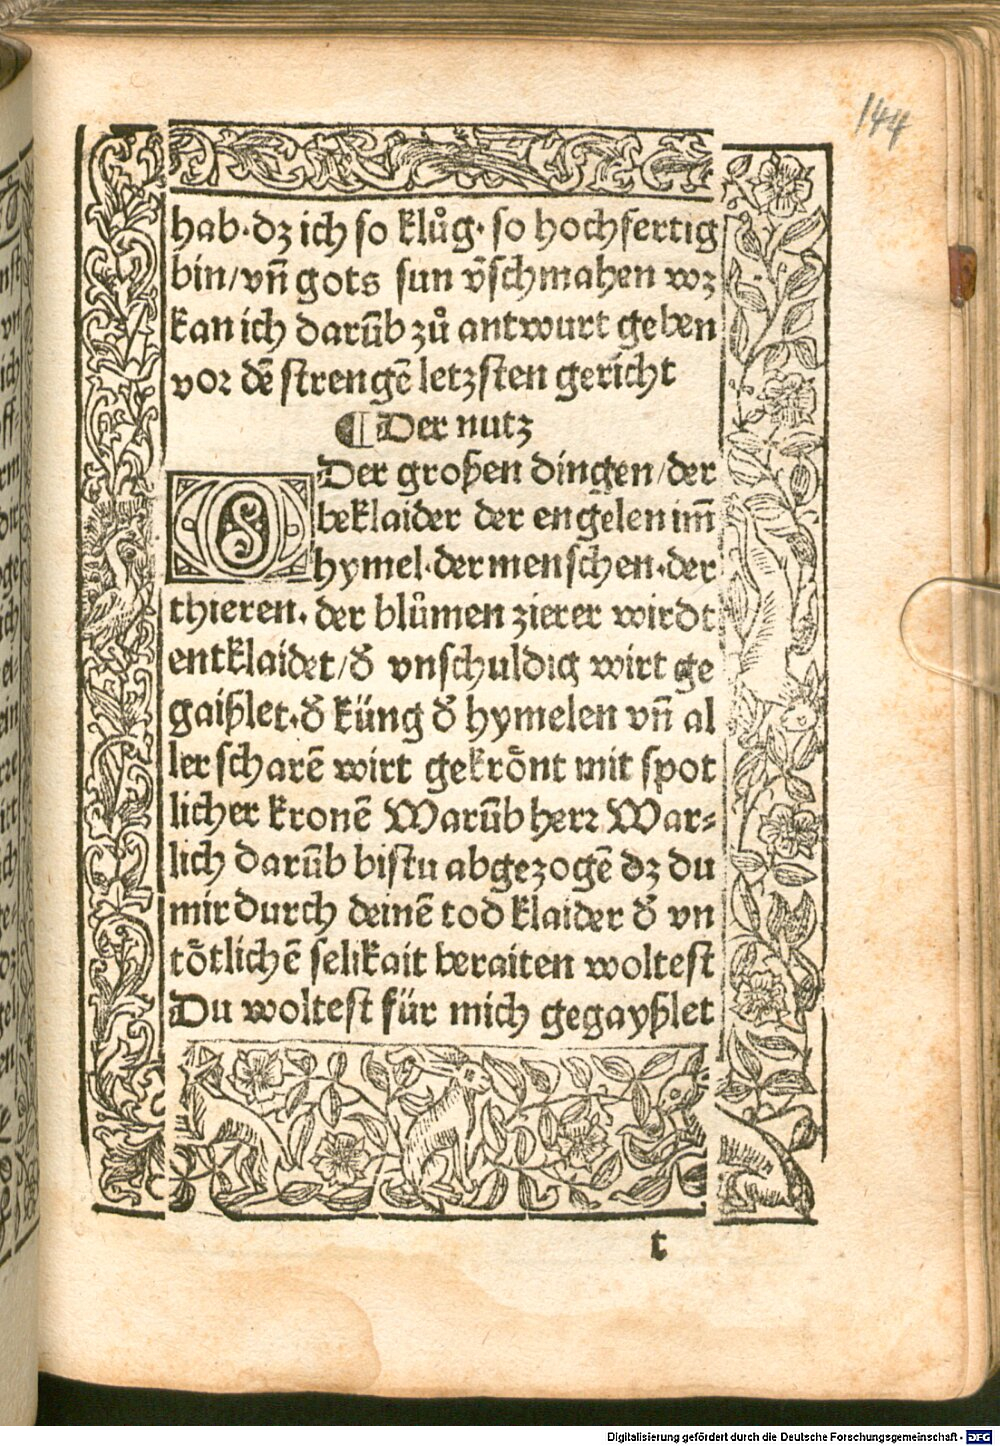 144
hab·dz ich so klůg·so hochfertig
bin/vn̄ gots sun v̄schmahen wz
kan ich darūb zů antwurt geben
vor dē strengē letzsten gericht
¶Der nutz
O
Der großen dingen/der
beklaider der engelen im̄
hymel·der menschen·der
thieren·der blůmen zierer wirdt
entklaidet/d̄ vnschuldig wirt ge
gaißlet·d̄ küng d̄ hymelen vn̄ al
ler scharē wirt gekrönt mit spot
licher kronē Warūb herr War⸗
lich darūb bistu abgezogē dz du
mir durch deinē tod klaider d̄ vn
tötlichē selikait beraiten woltest
Du woltest für mich gegayßlet
t
Digitalisierung gefördert durch die Deutsche Forschungsgemeinschaft - DFG